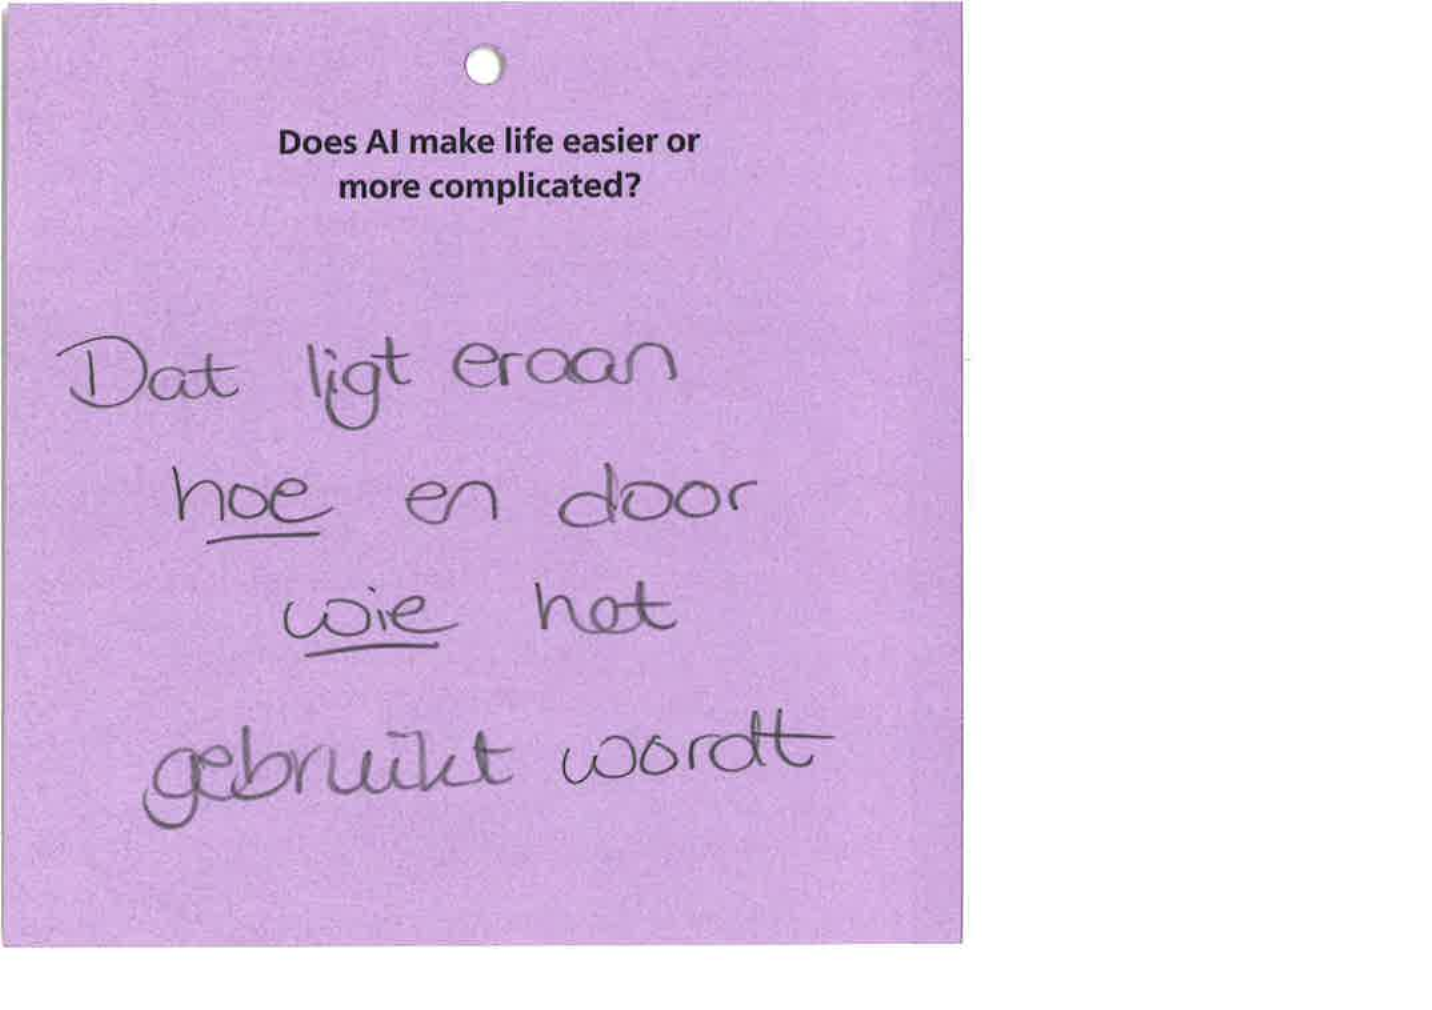 Does AI make life easier or
more complicated?
Dat ligt eraan
hoe en door
wie het
gebruikt wordt